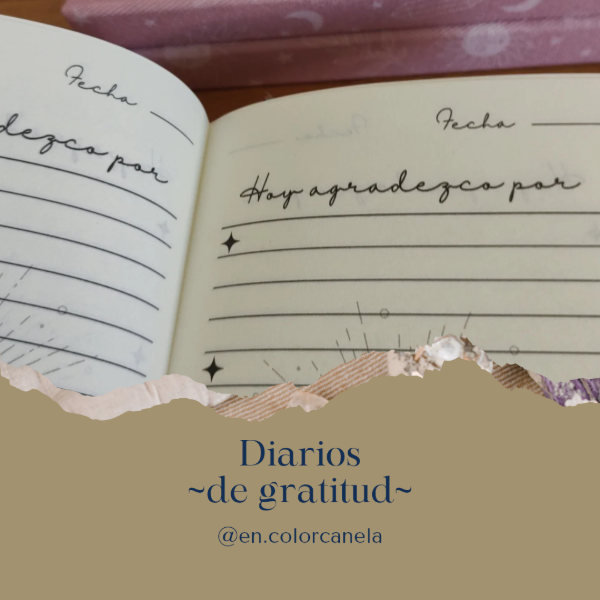 Fecha
dezco por
Fecha
Hoy agradezco por
Diarios
~de gratitud~
@en.colorcanela